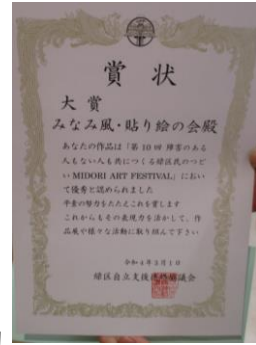 賞状
大賞
みなみ風・貼り絵の会殿
あなたの作品は「第10回 障害のある
人もない人も共につくる緑区民のつど
い MIDORI ART FESTIVAL」におい
て優秀と認められました
平素の努力をたたえこれを賞します
これからもその表現力を活かして、作
品展や様々な活動に取り組んで下さい
令和4年3月1日
緑区自立支援連絡協議会